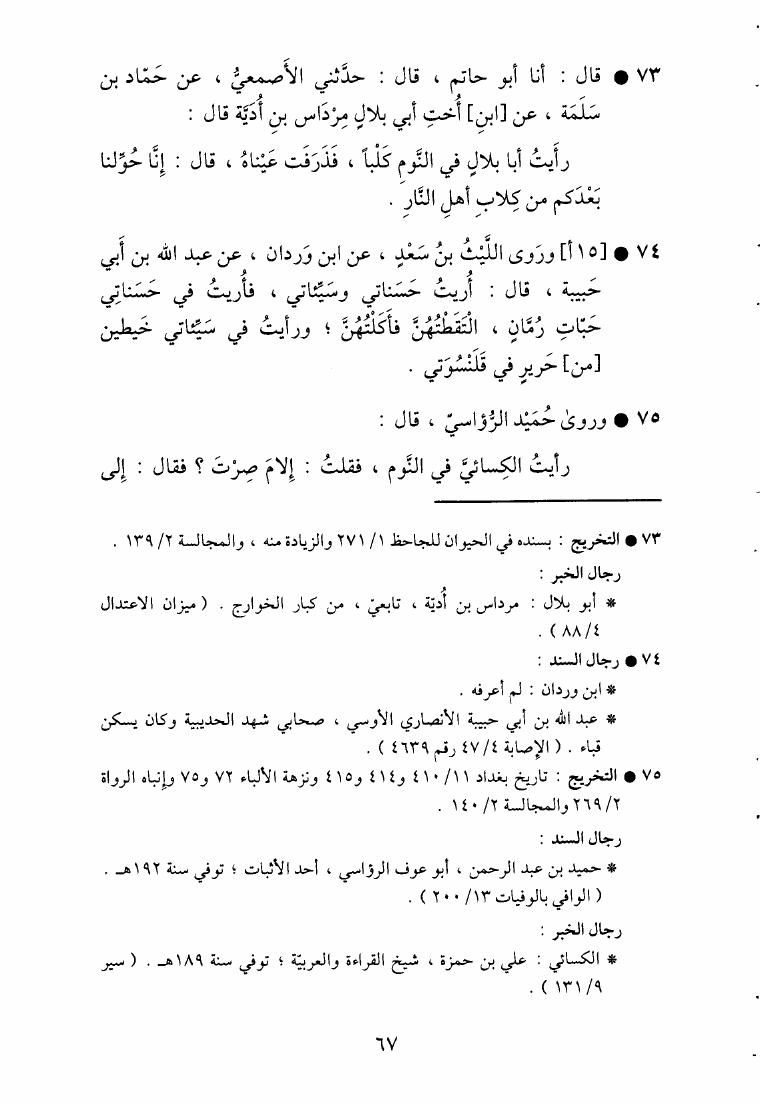 ٧٣ ● قال : أنا أبو حاتم ، قال : حدَّثني الأَصمعيُّ ، عن حَمّاد بن
سَلَمَة ، عن [ابنِ] أُختِ أبي بلالٍ مِرْدَاس بنِ أُدَيَّة قال :
رأَيتُ أبا بلالٍ في النَّوم كَلْباً ، فَذَرَفَت عَيْناهُ ، قال : إِنَّا حُوِّلنا
بَعْدَكم من كِلابِ أهلِ النَّارِ .
٧٤ ● [١٥أ] ورَوى اللَّيْثُ بنُ سَعْدٍ ، عن ابن وَردان ، عن عبد الله بن أَبي
حَبيبة ، قال : أُريتُ حَسَناتي وسَيِّئاتي ، فأُريتُ في حَسَناتِي
حَبّاتِ رُمَّانٍ ، الْتَقَطْتُهُنَّ فأَكَلْتُهُنَّ ؛ ورأيتُ في سَيِّئاتي خَيطين
[من] حَريرٍ في قَلَنْسُوَتي .
٧٥ ● وروىٰ حُمَيْد الرُّؤاسيّ ، قال :
رأيتُ الكِسائيَّ في النَّوم ، فقلتُ : إِلامَ صِرْتَ ؟ فقال : إلى
٧٣ ● التخريج : بسنده في الحيوان للجاحظ ١/ ٢٧١ والزيادة منه ، والمجالسة ٢/ ١٣٩ .
رجال الخبر :
* أبو بلال : مرداس بن أُديّة ، تابعيّ ، من كبار الخوارج . ( ميزان الاعتدال
٤/ ٨٨ ) .
٧٤ ● رجال السند :
* ابن وردان : لم أعرفه .
* عبد الله بن أبي حبيبة الأنصاري الأوسي ، صحابي شهد الحديبية وكان يسكن
قباء . ( الإصابة ٤/ ٤٧ رقم ٤٦٣٩ ) .
٧٥ ● التخريج : تاريخ بغداد ١١/ ٤١٠ و٤١٤ و٤١٥ ونزهة الألباء ٧٢ و٧٥ وإنباه الرواة
٢/ ٢٦٩ والمجالسة ٢/ ١٤٠ .
رجال السند :
* حميد بن عبد الرحمن ، أبو عوف الرؤاسي ، أحد الأثبات ؛ توفي سنة ١٩٢هـ .
( الوافي بالوفيات ١٣/ ٢٠٠ ) .
رجال الخبر :
* الكسائي : علي بن حمزة ، شيخ القراءة والعربيّة ؛ توفي سنة ١٨٩هـ . ( سير
٩/ ١٣١ ) .
٦٧